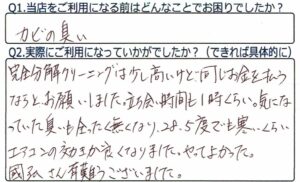 Q1.当店をご利用になる前はどんなことでお困りでしたか?
カビの臭い
Q2.実際にご利用になっていかがでしたか?(できれば具体的に)
完全分解クリーニングは少し高いけど同じお金を払う
ならとお願いしました。立会い時間も1時くらい。気になっ
ていた臭いも全たく無くなり、28.5度でも寒いくらい
エアコンの効きが良くなりました。やってよかった。
さん有難うございました。